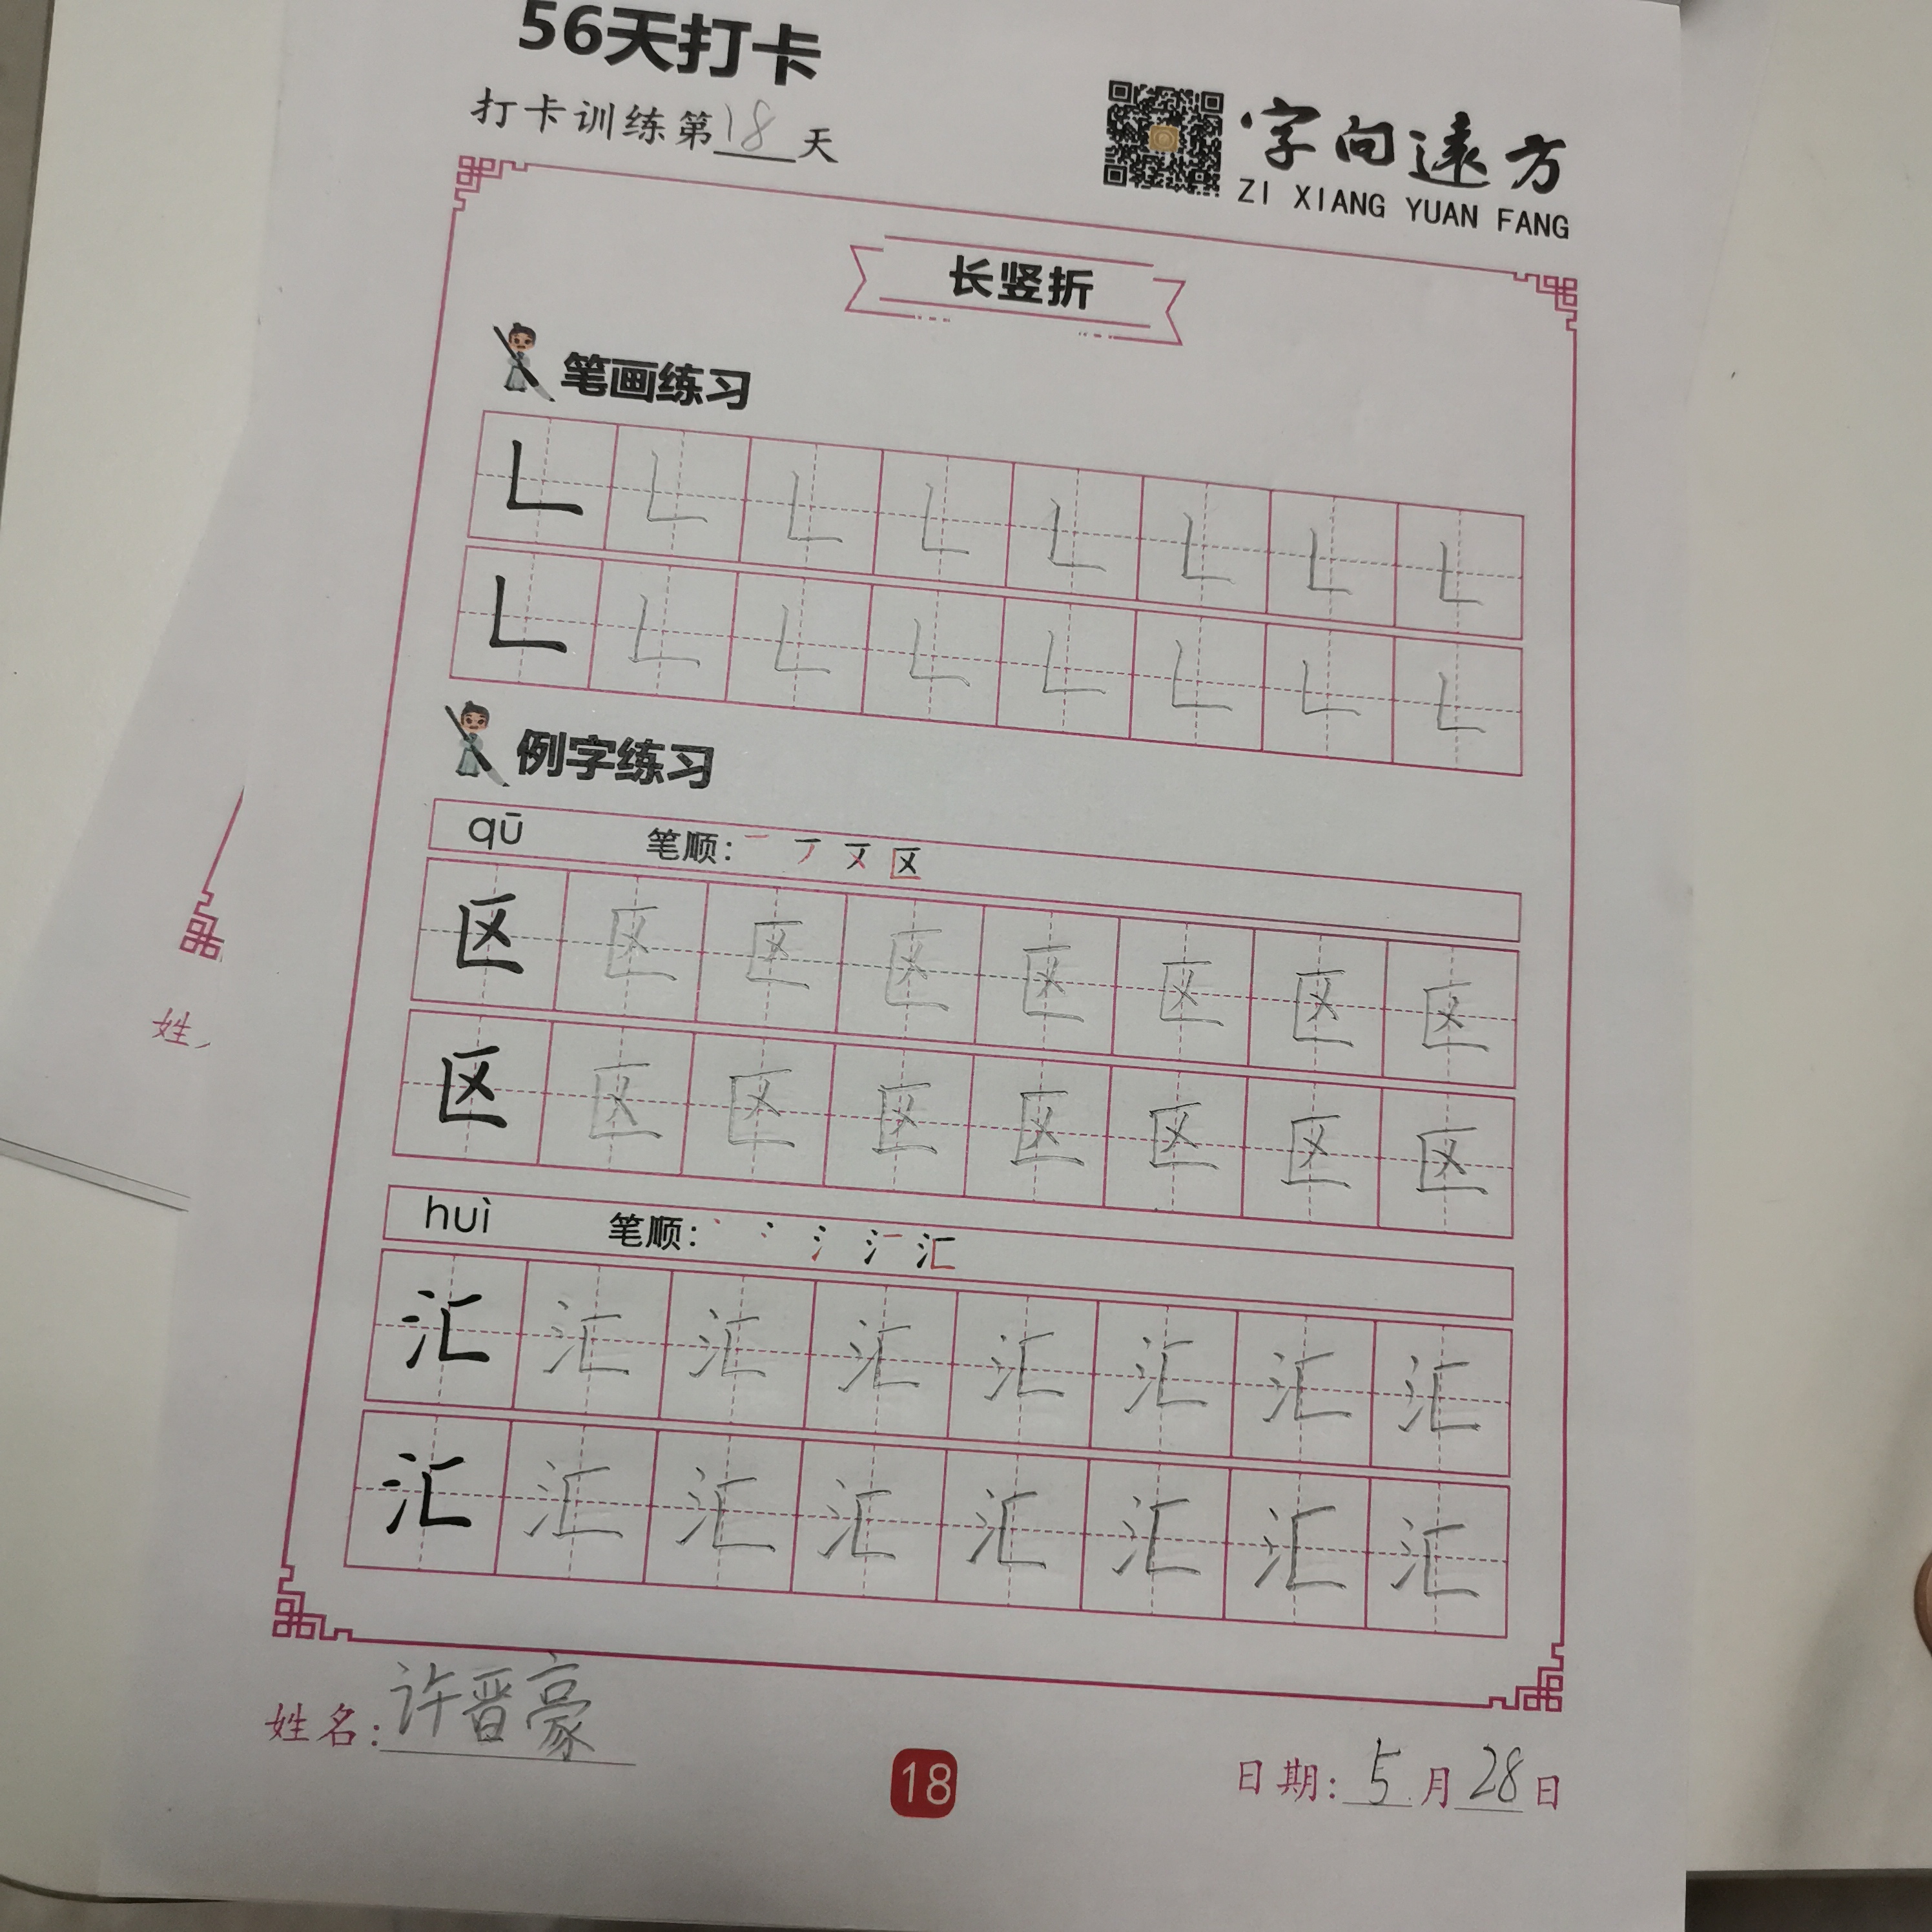 56天打卡
打卡训练第18天
字向遠方
ZI XIANG YUAN FANG
长竖折
笔画练习
𠃊 𠃊 𠃊 𠃊 𠃊 𠃊 𠃊 𠃊
𠃊 𠃊 𠃊 𠃊 𠃊 𠃊 𠃊 𠃊
例字练习
qū 笔顺: 一 丆 区
区 区 区 区 区 区 区 区
区 区 区 区 区 区 区 区
huì 笔顺: 丶 冫 氵 汇
汇 汇 汇 汇 汇 汇 汇 汇
汇 汇 汇 汇 汇 汇 汇 汇
姓名:许晋豪
18
日期:5月28日
姓